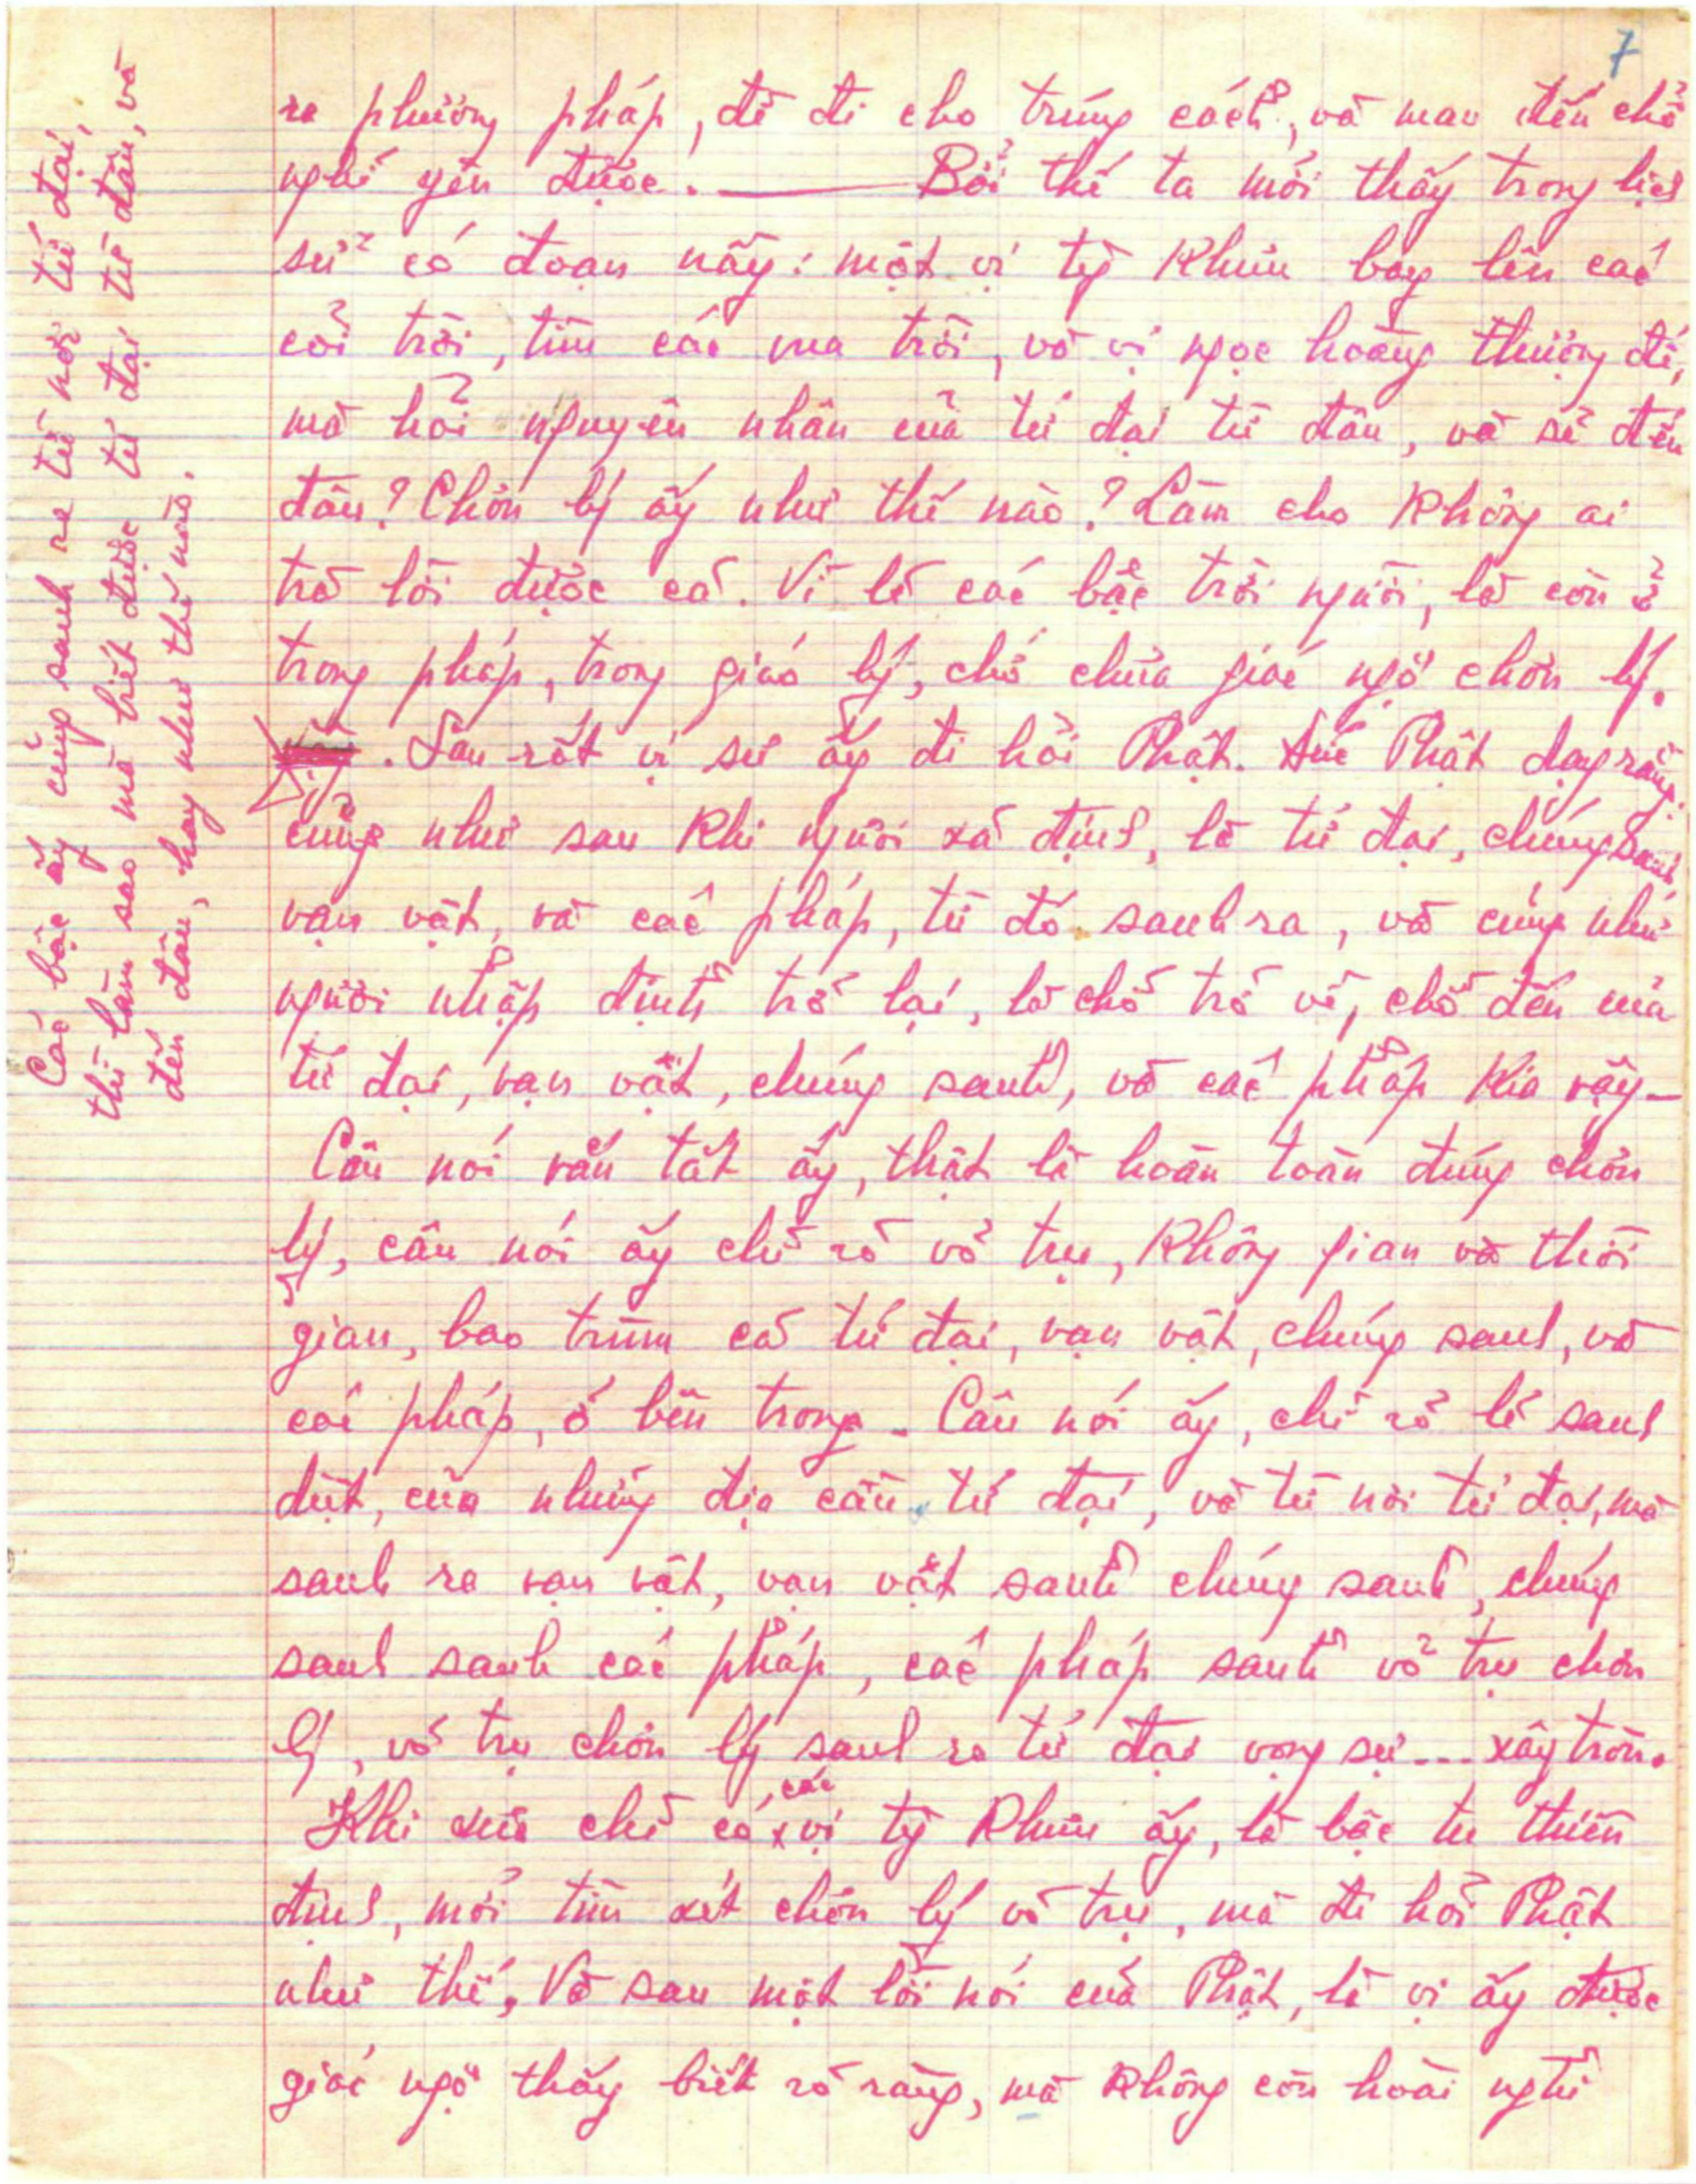 7
ra phương pháp, để đi cho trúng cách, và mau đến chỗ
nghỉ yên được. — Bởi thế ta mới thấy trong lịch
sử có đoạn nầy: một vị tỳ khưu bay lên các
cõi trời, tìm các vua trời, và vị ngọc hoàng thượng đế,
mà hỏi nguyên nhân của tứ đại từ đâu, và sẽ đến
đâu? Chơn lý ấy như thế nào? Làm cho không ai
trả lời được cả. Vì lẽ các bậc trời người, là còn ở
trong pháp, trong giáo lý, chớ chưa giác ngộ chơn lý.
. Sau rốt vị sư ấy đi hỏi Phật. Đức Phật dạy rằng:
cũng như sau khi người xả định, là tứ đại, chúng sanh,
vạn vật, và các pháp, từ đó sanh ra, và cũng như
người nhập định trở lại, là chỗ trở về, chỗ đến của
tứ đại, vạn vật, chúng sanh, và các pháp kia vậy –
Câu nói vắn tắt ấy, thật là hoàn toàn đúng chơn
lý, câu nói ấy chỉ rõ võ trụ, không gian và thời
gian, bao trùm cả tứ đại, vạn vật, chúng sanh, và
các pháp, ở bên trong. Câu nói ấy, chỉ rõ lẽ sanh
diệt, của những địa cầu tứ đại, và từ nơi tứ đại, mà
sanh ra vạn vật, vạn vật sanh chúng sanh, chúng
sanh sanh các pháp, các pháp sanh võ trụ chơn
lý, võ trụ chơn lý sanh ra tứ đại vọng sự... xây tròn.
Khi xưa chỉ có, các vị tỳ khưu ấy, là bậc tu thiền
định, mới tìm xét chơn lý võ trụ, mà đi hỏi Phật
như thế, Và sau một lời nói của Phật, là vị ấy được
giác ngộ thấy biết rõ ràng, mà không còn hoài nghi
Các bậc ấy cũng sanh ra từ nơi tứ đại,
thì làm sao mà biết được tứ đại từ đâu, và
đến đâu, hay như thế nào.